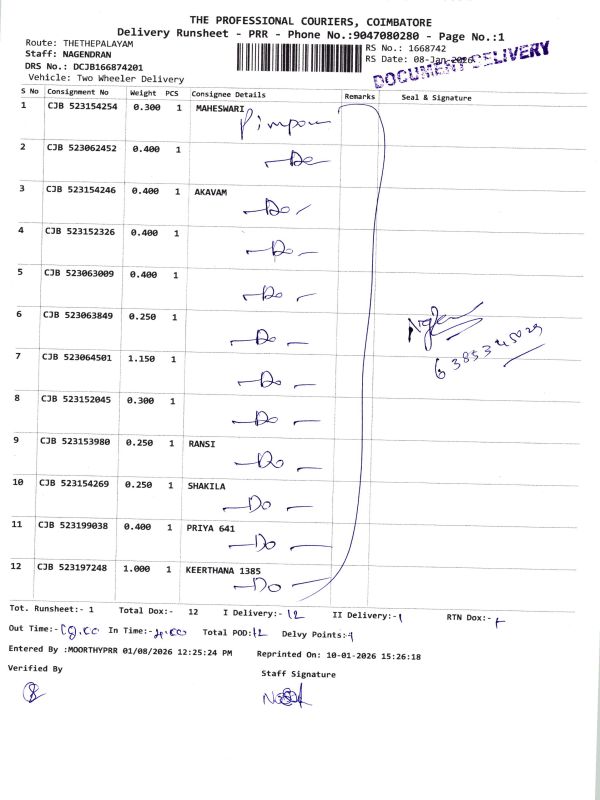 THE PROFESSIONAL COURIERS, COIMBATORE
Delivery Runsheet - PRR - Phone No.:9047080280 - Page No.:1
Route: THETHEPALAYAM
RS No.: 1668742
Staff: NAGENDRAN
RS Date: 08-Jan-2026
DRS No.: DCJB166874201
DOCUMENT DELIVERY
Vehicle: Two Wheeler Delivery
S No Consignment No Weight PCS Consignee Details Remarks Seal & Signature
1 CJB 523154254 0.300 1 MAHESWARI
2 CJB 523062452 0.400 1
Do
3 CJB 523154246 0.400 1 AKAVAM
Do
4 CJB 523152326 0.400 1
Do
5 CJB 523063009 0.400 1
Do
6 CJB 523063849 0.250 1
Do
7 CJB 523064501 1.150 1
Do
8 CJB 523152045 0.300 1
Do
9 CJB 523153980 0.250 1 RANSI
Do
10 CJB 523154269 0.250 1 SHAKILA
Do
11 CJB 523199038 0.400 1 PRIYA 641
Do
12 CJB 523197248 1.000 1 KEERTHANA 1385
Do
6385345029
Tot. Runsheet:- 1 Total Dox:- 12 I Delivery:- 12 II Delivery:- RTN Dox:-
Out Time:- In Time:- Total POD:12 Delvy Points:-
Entered By :MOORTHYPRR 01/08/2026 12:25:24 PM Reprinted On: 10-01-2026 15:26:18
Verified By
Staff Signature